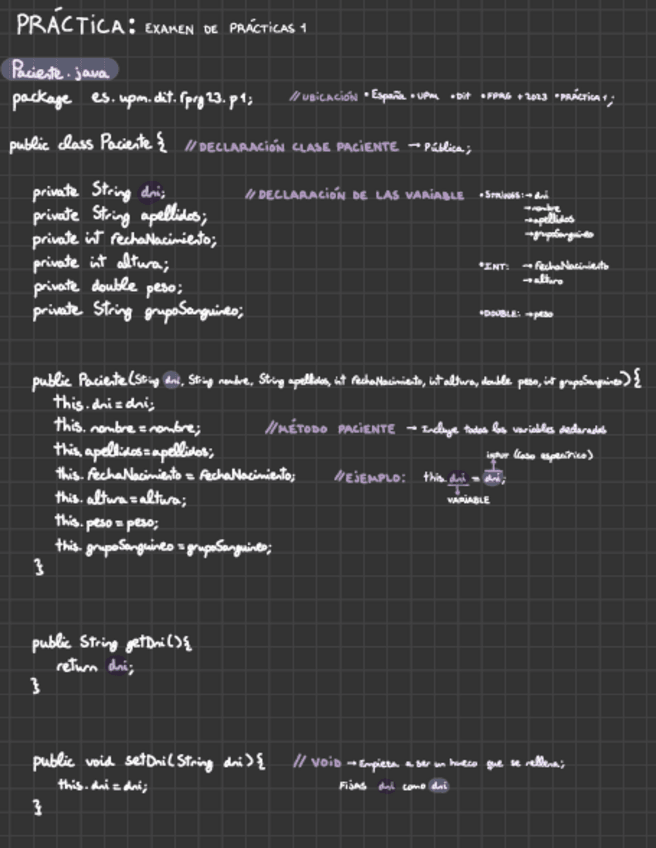 PRÁCTICA: EXAMEN DE PRÁCTICAS 1
Paciente.java
package es.upm.dit.fprg23.p1; //UBICACIÓN •España •UPM •Dit •FPRG •2023 •PRÁCTICA 1;
public class Paciente{ //DECLARACIÓN CLASE PACIENTE → Pública;
private String dni; //DECLARACIÓN DE LAS VARIABLE •STRINGS: → dni
→nombre
private String apellidos; →apellidos
→grupoSanguineo
private int fechaNacimiento;
private int altura; •INT: → fechaNacimiento
→ altura
private double peso;
private String grupoSanguineo; •DOUBLE: →peso
public Paciente(String dni, String nombre, String apellidos, int fechaNacimiento, int altura, double peso, int grupoSanguineo){
this.dni=dni;
this.nombre=nombre; //MÉTODO PACIENTE → Incluye todas las variables declaradas
this.apellidos=apellidos; input (caso específico)
this.fechaNacimiento = fechaNacimiento; //EJEMPLO: this.dni = dni;
this.altura=altura; VARIABLE
this.peso=peso;
this.grupoSanguineo=grupoSanguineo;
}
public String getDni(){
return dni;
}
public void setDni(String dni){ // VOID → Empieza a ser un hueco que se rellena;
this.dni=dni; Fijas dni como dni
}